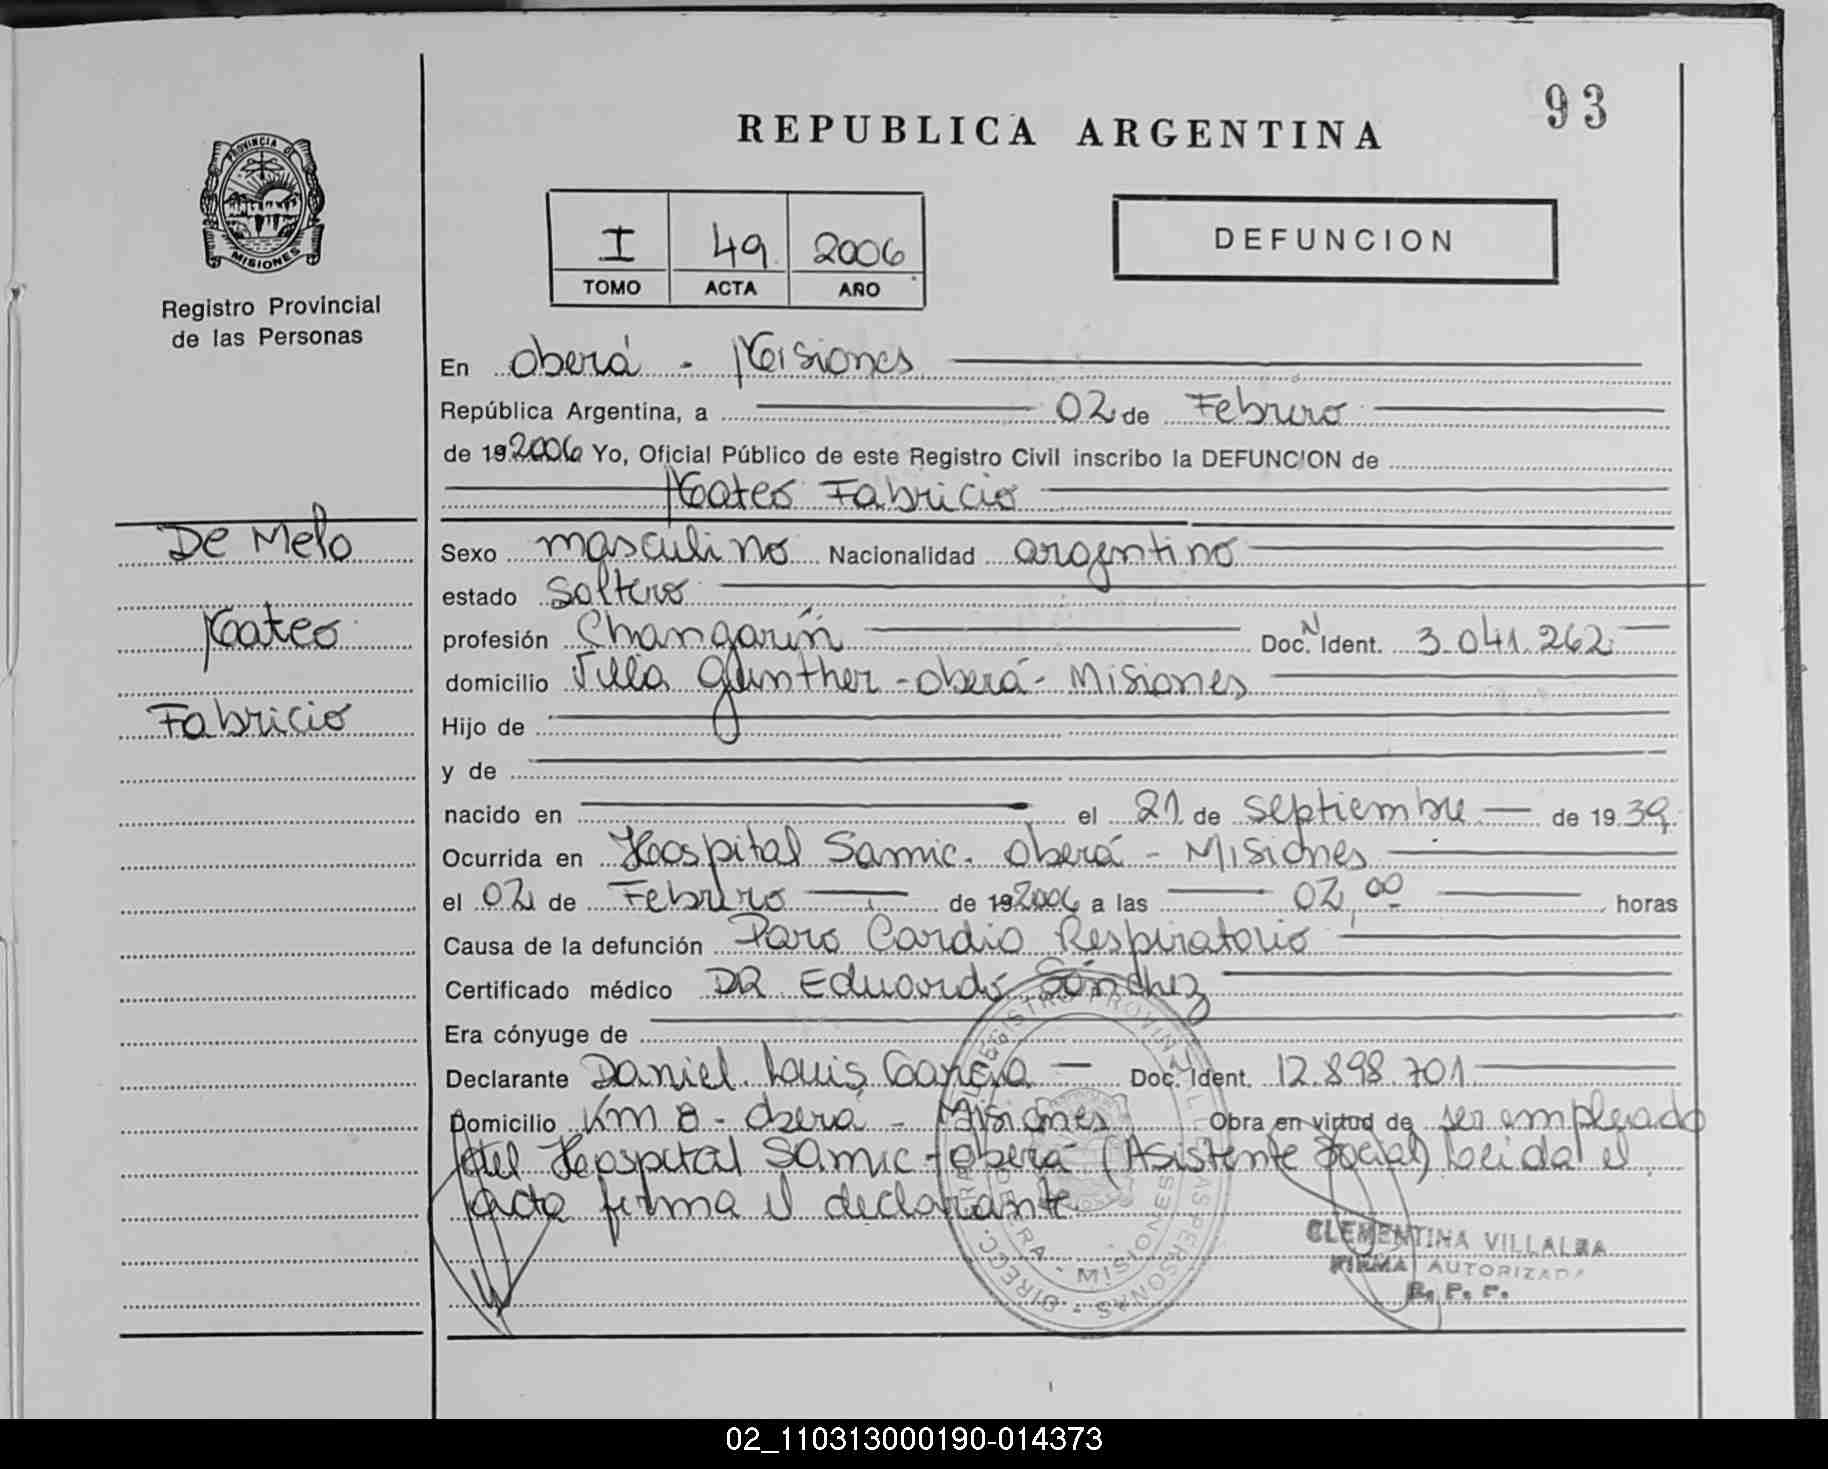 93
REPUBLICA ARGENTINA
PROVINCIA DE
MISIONES
Registro Provincial
de las Personas
I 49 2006
TOMO ACTA AÑO
DEFUNCION
En Oberá - Misiones
República Argentina, a 02 de Febrero
de 192006 Yo, Oficial Público de este Registro Civil inscribo la DEFUNCION de
Mateo Fabricio
De Melo
Mateo
Fabricio
Sexo masculino Nacionalidad argentino
estado Soltero
profesión Changarín Doc. N Ident. 3.041.262
domicilio Villa Gunther - Oberá - Misiones
Hijo de
y de
nacido en el 21 de septiembre de 1939
Ocurrida en Hospital Samic. Oberá - Misiones
el 02 de Febrero de 192006 a las 02,00 horas
Causa de la defunción Paro Cardio Respiratorio
Certificado médico DR Eduardo Sánchez
Era cónyuge de
Declarante Daniel Louis Doc. Ident. 12.898.701
Domicilio Km 8 - Oberá - Misiones Obra en virtud de ser empleado
del Hospital Samic - Oberá (Asistente Social) Leida el
acta firma el declarante
CLEMENTINA VILLALBA
FIRMA AUTORIZADA
R. P. P.
DIREC. GRAL. REGISTRO PROVINCIAL DE LAS PERSONAS
MISIONES
02_110313000190-014373